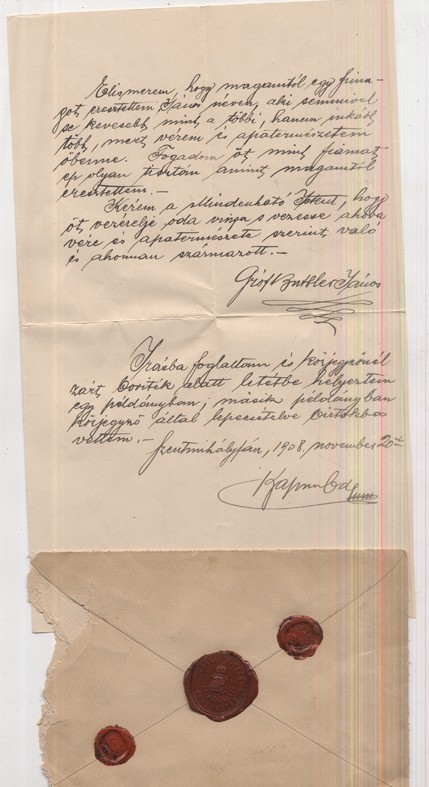 Elismerem, hogy magamtól egy fima-
got eresztettem János néven, aki semmivel
se kevesebb mint a többi, hanem inkább
több, mert vérem és apatermészetem
őbenne. Fogadom őt mint fiamat
ép olyan tisztán amint magamtól
eresztettem.—
Kérem a Mindenható Istent, hogy
őt vezérelje oda vissza s vezesse ahova
vére és apatermészete szerint való
és ahonnan származott.—
Gróf Buttler János
Írásba foglaltam és közjegyzőnél
zárt boríték alatt letétbe helyeztem
egy példányban; másik példányban
közjegyző által lepecsételve birtokba
vettem.—
Szentmihályfán, 1908. november 20